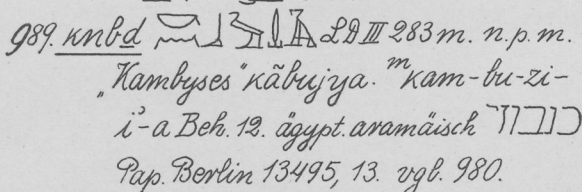 989. knbḏ LD III 283 m. n.p.m.
„Kambyses" kãbujya. ᵐkam-bu-zi-
i̓-a Beh. 12. ägypt. aramäisch כנבוזי
Pap. Berlin 13495, 13. vgl. 980.